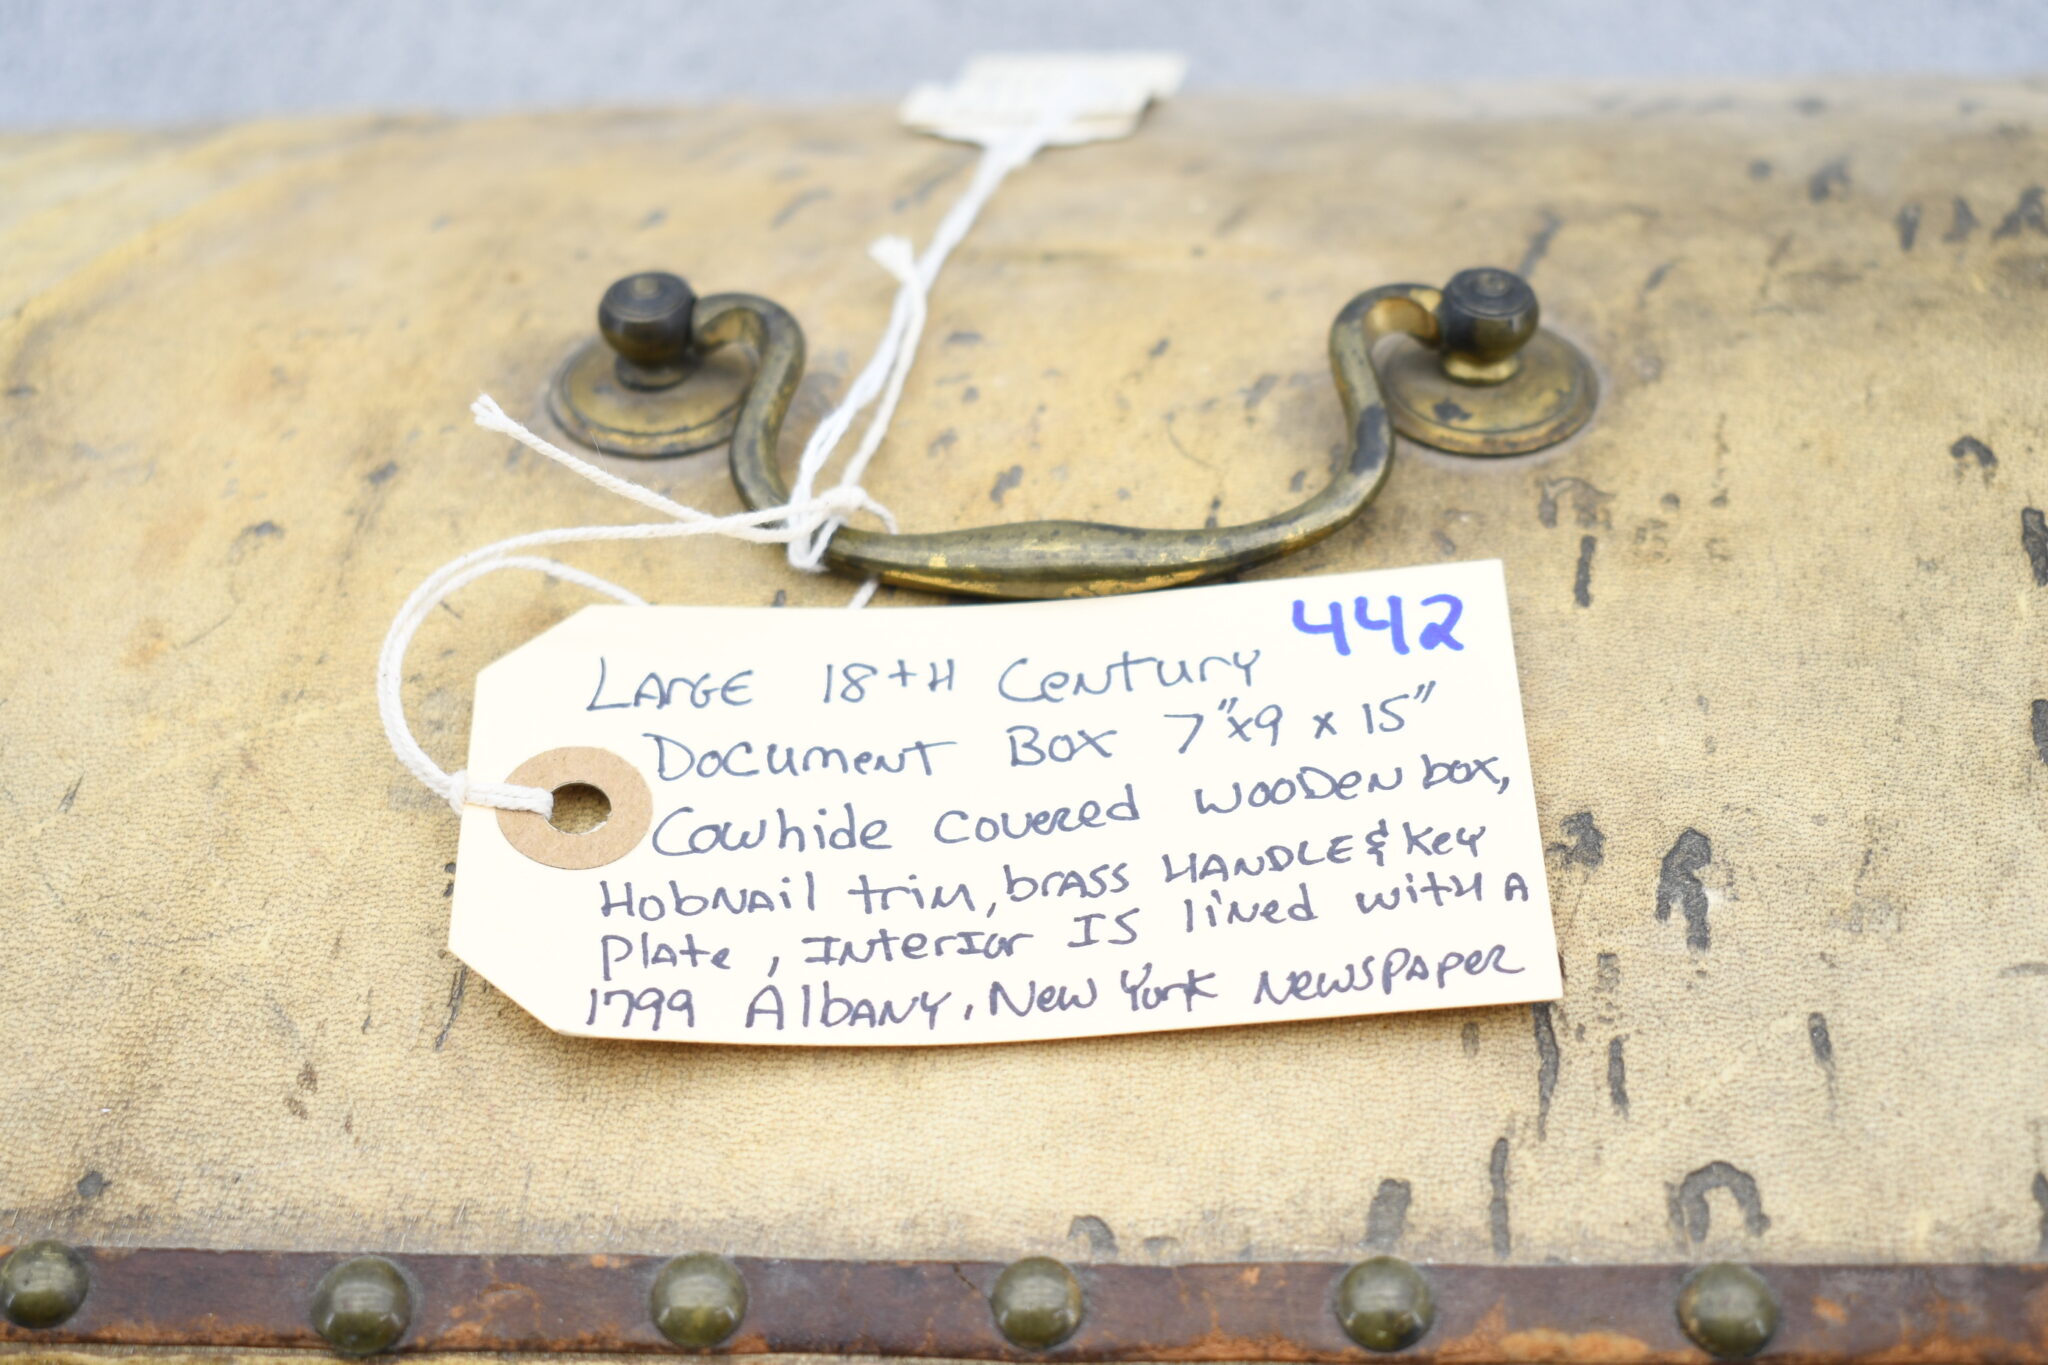 442
Large 18th Century
Document Box 7"x9 x 15"
Cowhide covered wooden box,
Hobnail trim, brass Handle & key
plate, Interior Is lined with A
1799 Albany, New York Newspaper